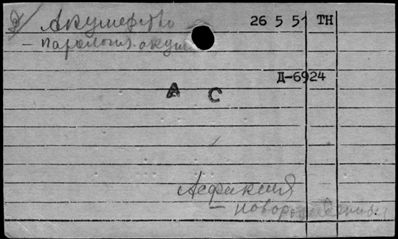 Акушерство 26 5 5 ТН
— патология акуш
Д-6924
А С
Асфиксия
— новорожденных